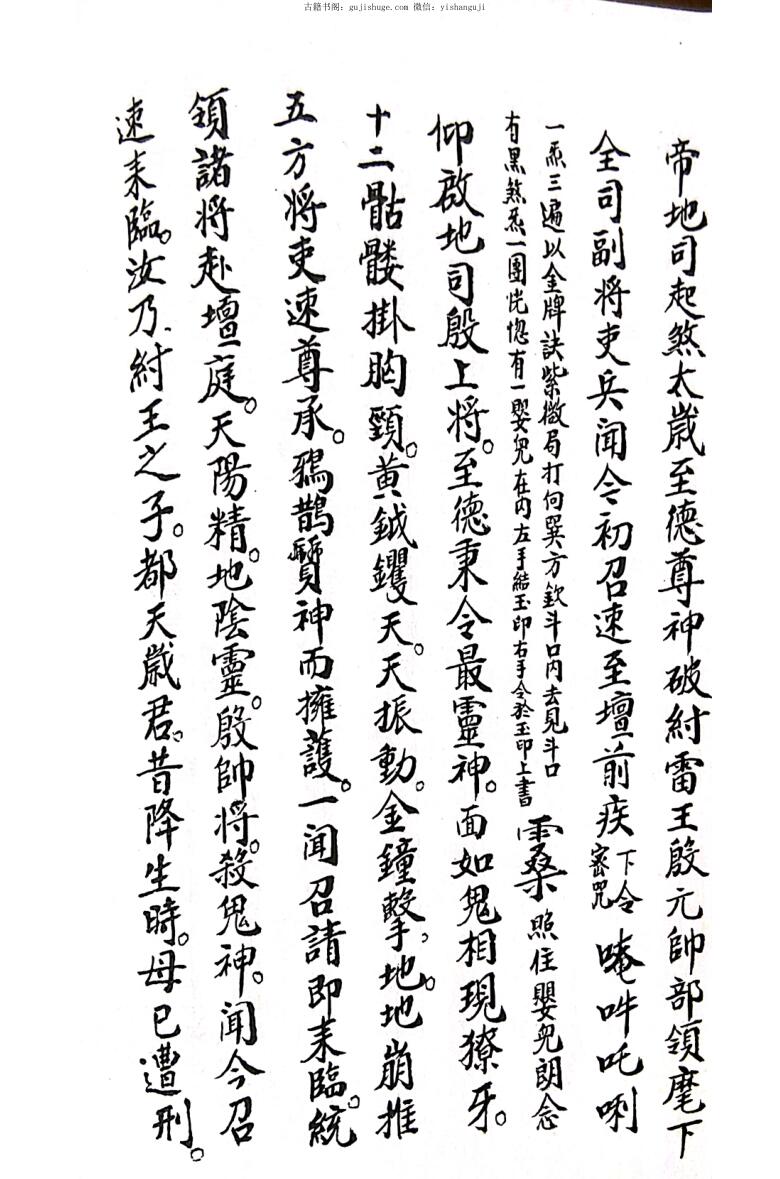 古籍书阁：gujishuge.com 微信：yishanguji
帝地司起煞太歲至德尊神破紂雷王殷元帥部領麾下
全司副將吏兵聞令初召速至壇前疾下令密咒唵吽吒唎
一炁三遍以金牌訣紫微局打何巽方欽斗口內去見斗口
有黑煞炁一團恍惚有一嬰兒在內左手結玉印右手令於玉印上書
照住嬰兒朗念
仰啟地司殷上將。至德秉令最靈神。面如鬼相現獠牙。
十二骷髏掛胸頸。黃鉞钁天。天振動。金鐘擊地。地崩摧
五方將吏速尊承。鴉鵲贤神而擁護。一聞召請即来臨。統
領諸將赴壇庭。天陽精。地陰靈。殷帥將。殺鬼神。聞今召
速来臨。汝乃紂王之子。都天歲君。昔降生時。母已遭刑。